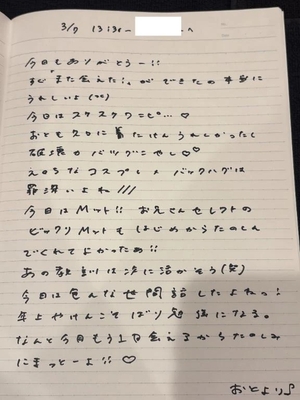 3/7 13:30〜 へ
今日もありがとうー!!
すぐ「また会えた!」ができたの本当に
うれしいよ
今日はスケスケワンピ…♡
おとも久々に着たけんうれしかったし
破壊力バツグンやし♡♡
えろろなコスプレ×バックハグは
罪深いよね///
今日はMット!! お兄さんセレクトの
ビックリMットもはじめからたのしん
でくれてよかったぁ!!
あの教訓は次に活かそう(笑)
今日は色んな世間話したよねっ!
年上やけんこそばり勉強になる。
なんと今月もう1回会えるからたのしみ
にまっとーよ!! ♡
おとより♪